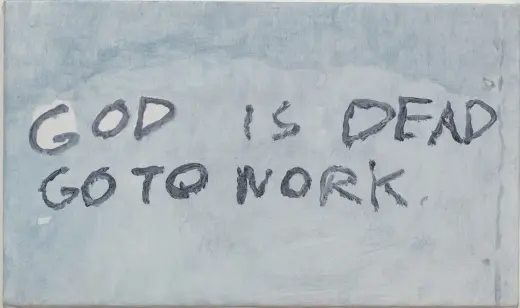 GOD IS DEAD
GO TO WORK.